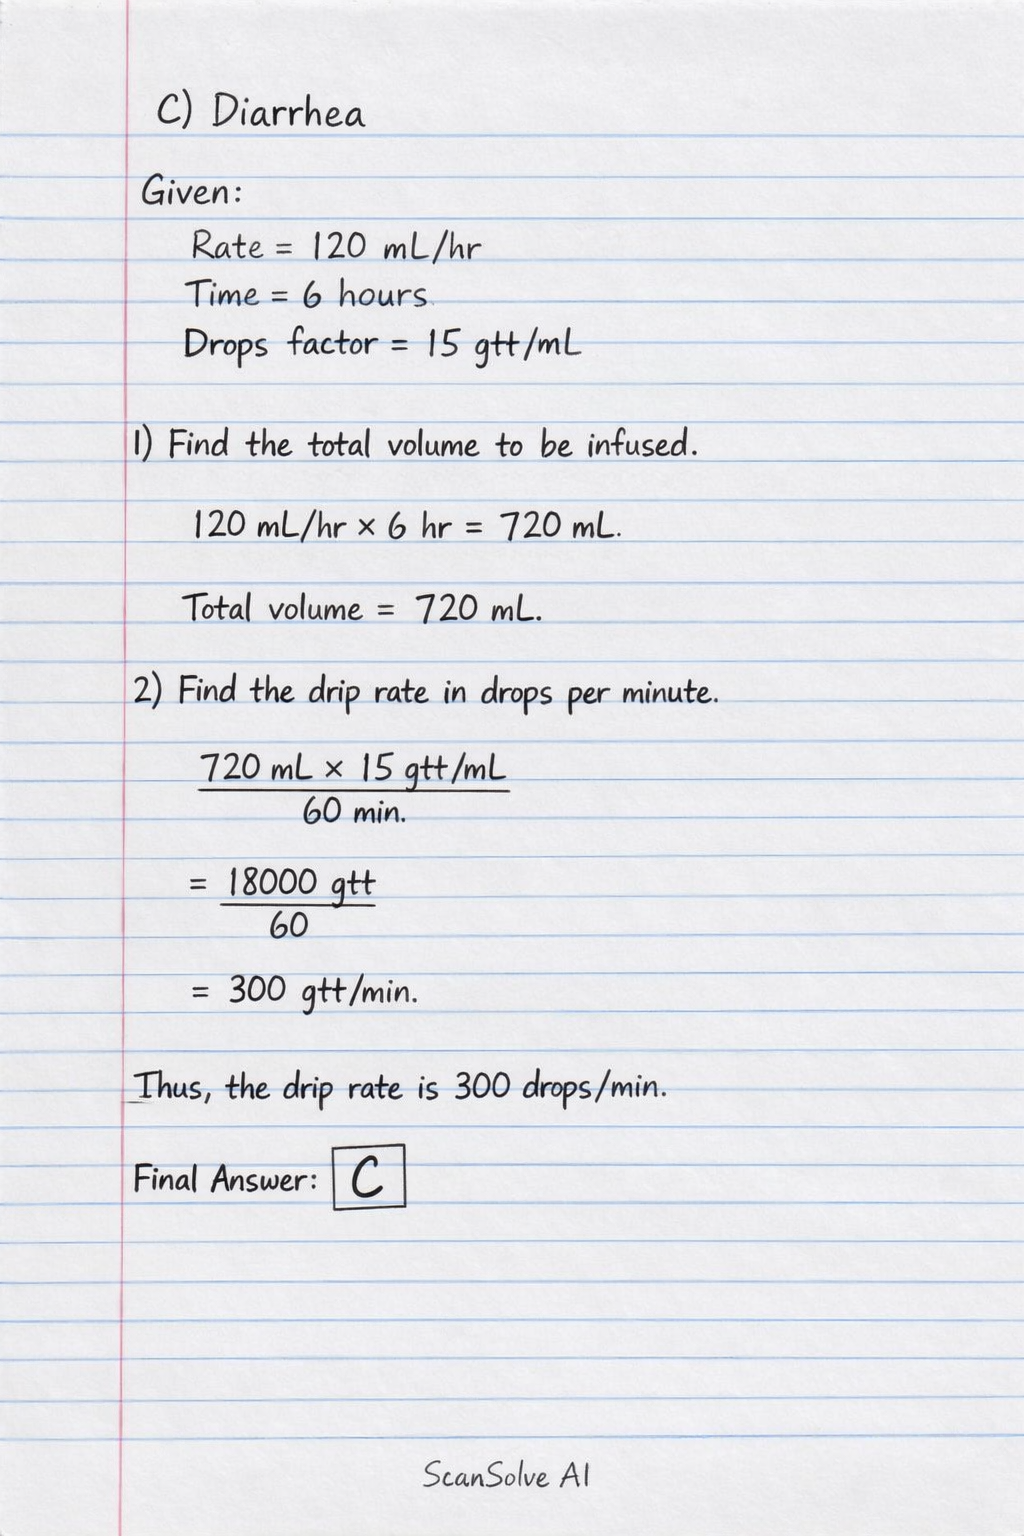 C) Diarrhea
Given:
Rate = 120 mL/hr
Time = 6 hours
Drops factor = 15 gtt/mL
1) Find the total volume to be infused.
120 mL/hr × 6 hr = 720 mL.
Total volume = 720 mL.
2) Find the drip rate in drops per minute.
720 mL × 15 gtt/mL
60 min.
= 18000 gtt
60
= 300 gtt/min.
Thus, the drip rate is 300 drops/min.
Final Answer: C
ScanSolve AI